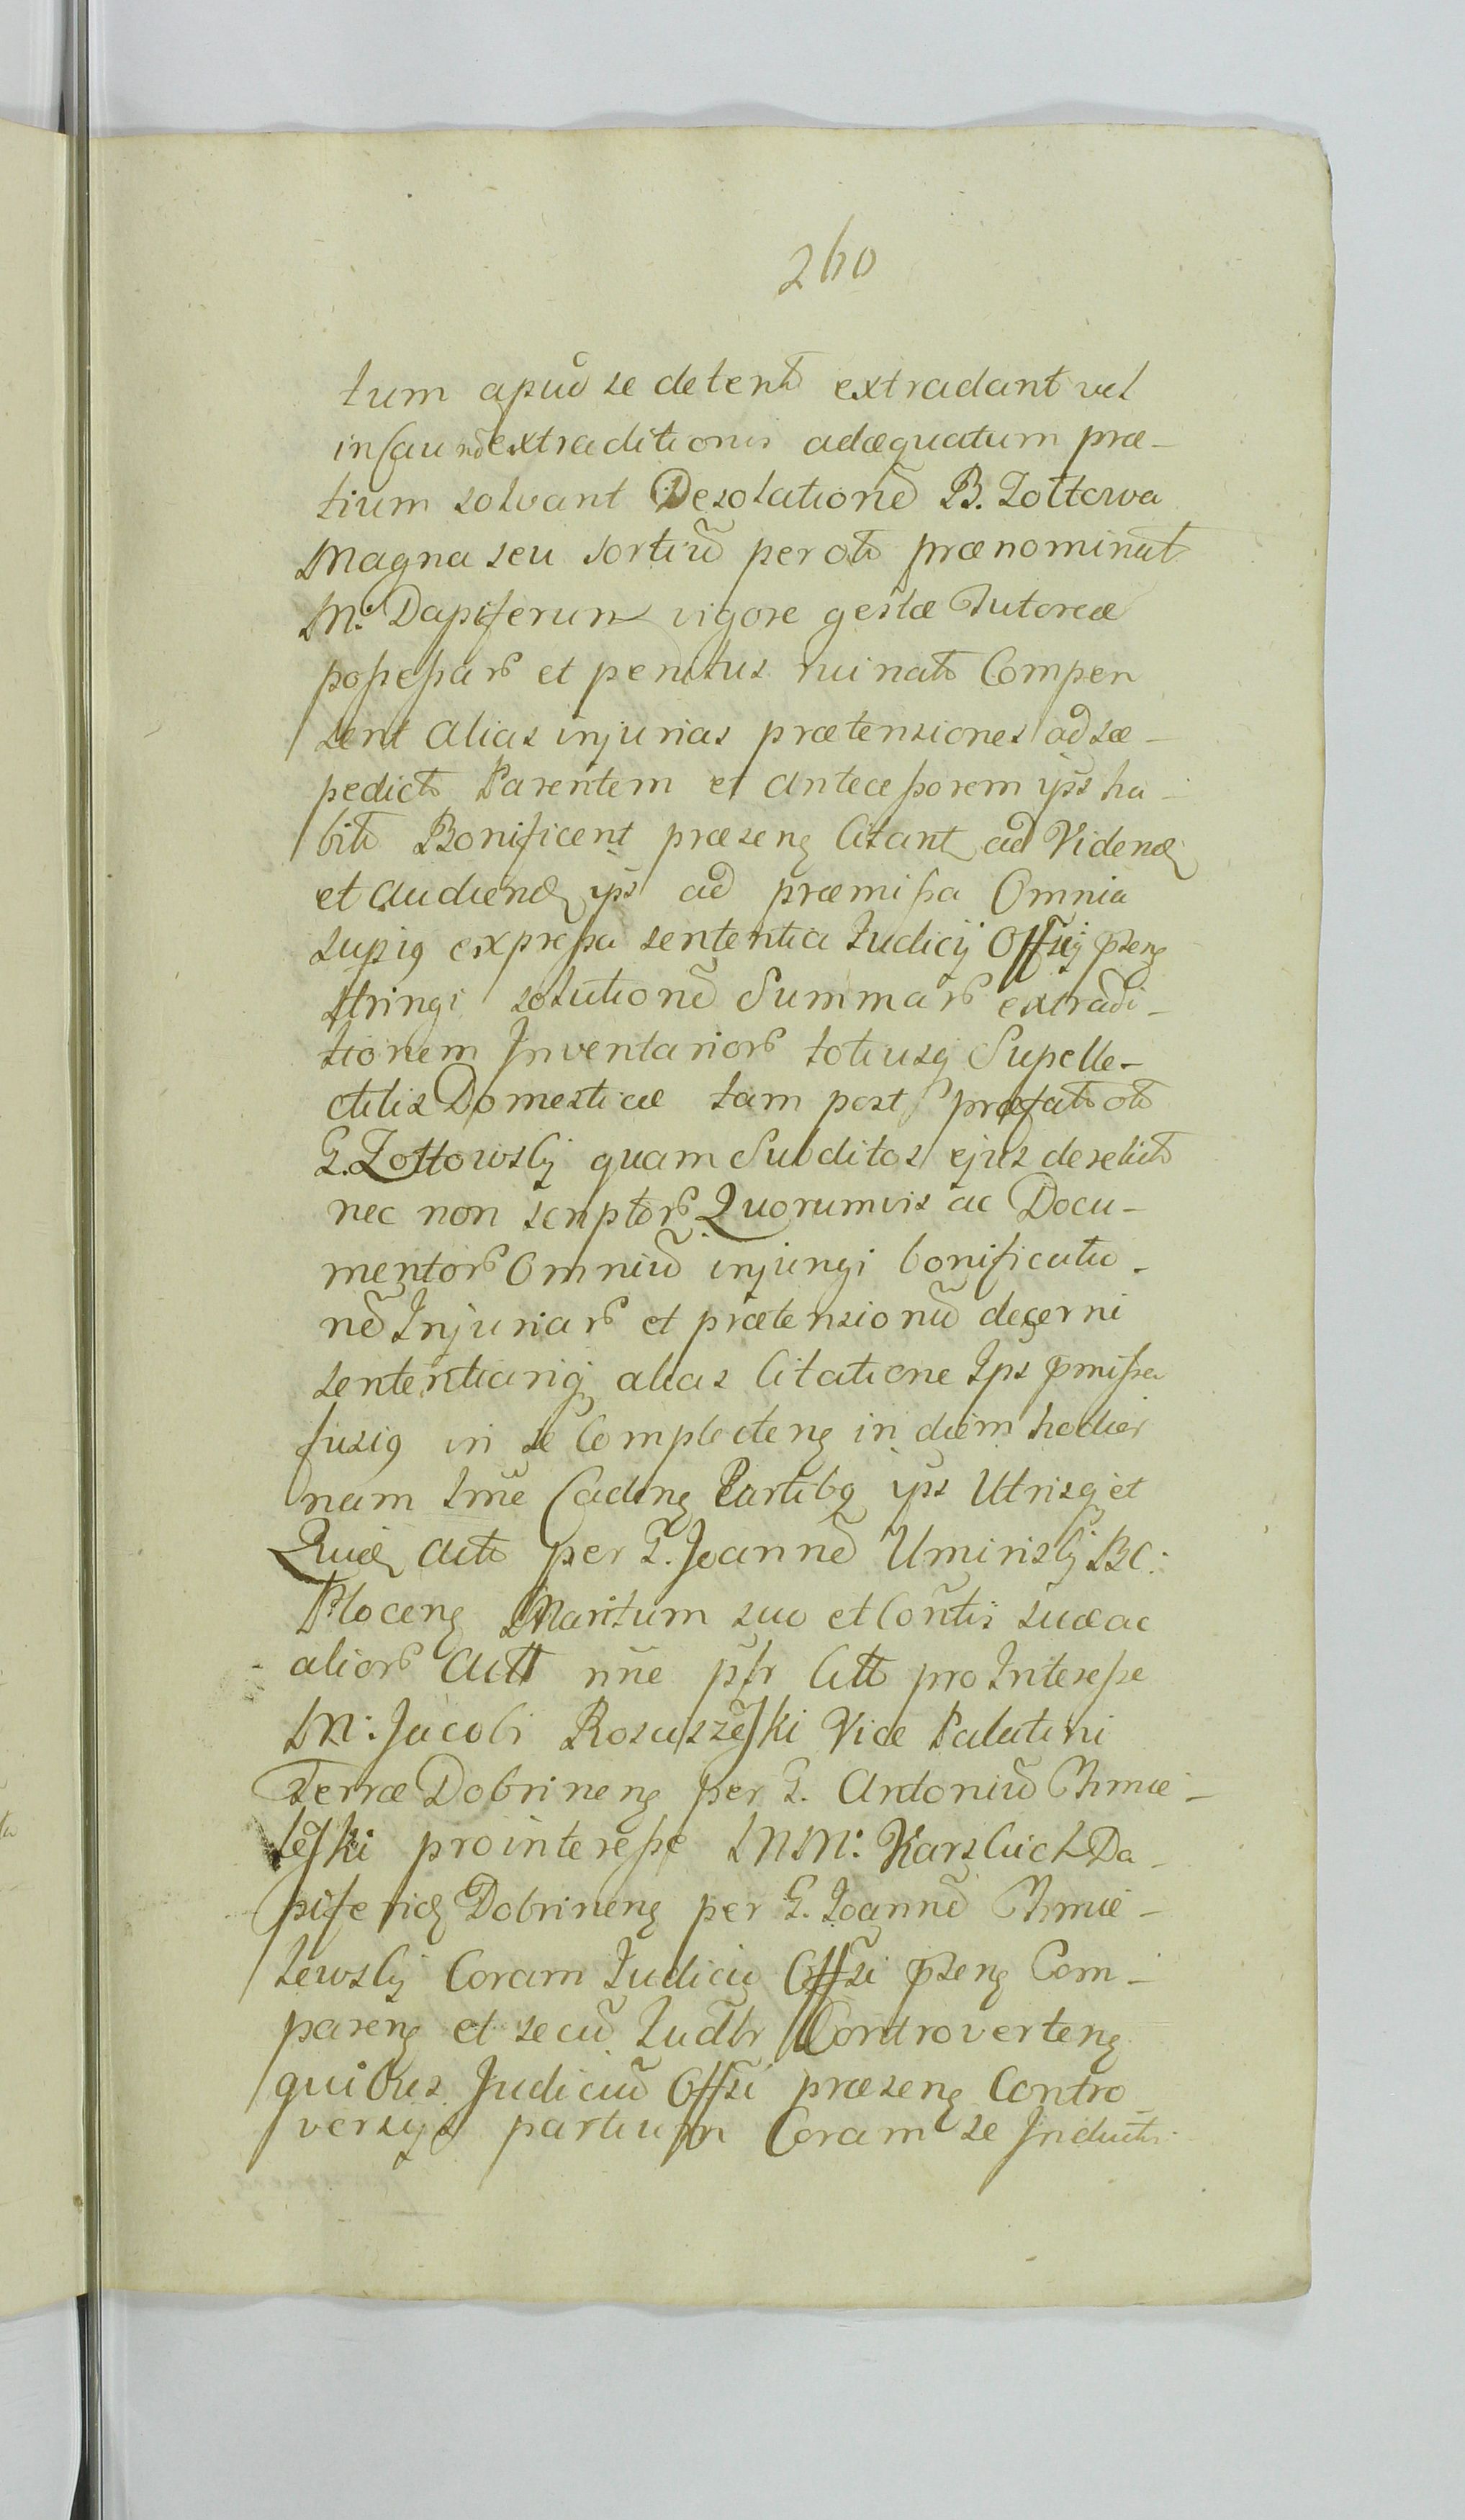 260
tum apud se detent extradant vel
in Caund extraditionis adæquatum præ-
tium solvant Desolatione B. Zottowa
Magna seu Sortiu per ol̃ prænominat
M: Dapiferum vigore gestæ Tutoreæ
possessar et penitus ruinat Compen
sent alias injurias prætensiones ad sæ-
pedict Parentem et antecessorem ips ha-
bit Bonificent præsenq Citant ad Videnđ
et audienđ ips ad præmissa Omnia
supiq expressa sententia Judicij Offsij pseng
stringi solutione Summar extradi-
tionem Inventarior totiusq Supelle-
ctilis Domesticæ tam post præfat ol̃
G. Zottowskj quam Subditos ejus derelict
nec non scriptor Quorumvis ac Docu-
mentor Omniu injungi bonificatio-
ne Injuriar et prætensionu decerni
sententiariq alias Citatione Ips pmissa
fusiq in se Complecteng in diem hodier
nam tme Cadeng Partibq ips Utrisq et
Quiđ act per G. Joanne Uminskj BC:
Ploceng Maritum suo et Contis suæ ac
alior Act nne psr Citt pro Interesse
M: Jacobi Rosaszeski Vice Palatini
Terræ Dobrineng per G. Antoniu Chmie-
leski pro interesse MM: Karskich Da-
piferiđ Dobrineng per G. Joanne Chmie-
lewskj Coram Judicio Offsi pseng Com-
pareng et secu Judlr Controverteng
quibus Judiciu Offsi præseng Contro
versijs partium Coram se Induct